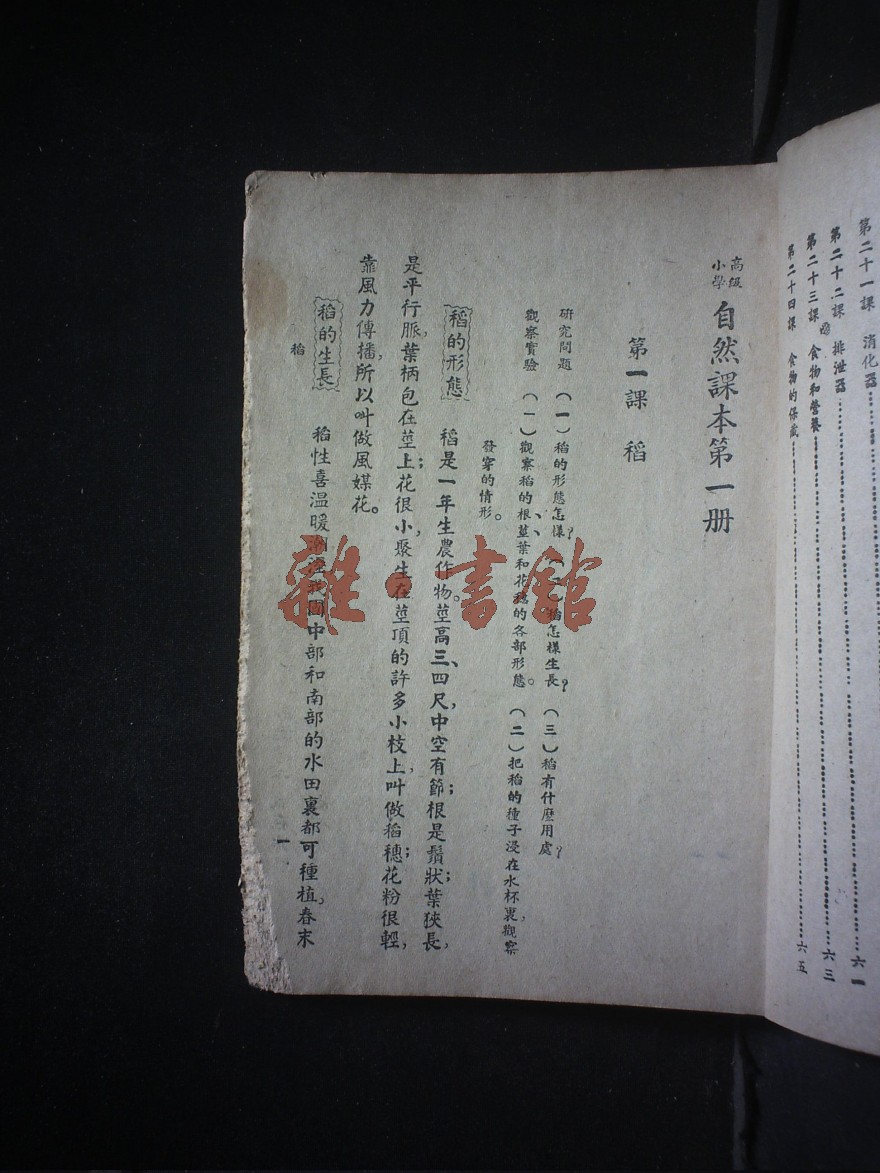 第二十一課 消化器……六一
第二十二課 排泄器……
第二十三課 食物和營養……六三
第二十四課 食物的保藏……六五
高級小學 自然課本第一册
第一課 稻
研究問題 (一)稻的形態怎樣? (二)稻怎樣生長? (三)稻有什麼用處?
觀察實驗 (一)觀察稻的根、莖、葉和花穗的各部形態。 (二)把稻的種子浸在水杯裏,觀察
發穿的情形。
稻的形態 稻是一年生農作物。莖高三、四尺,中空有節;根是鬚狀;葉狹長,
是平行脈,葉柄包在莖上;花很小,聚生在莖頂的許多小枝上,叫做稻穗;花粉很輕,
靠風力傳播,所以叫做風媒花。
稻的生長 稻性喜溫暖潮濕,我國中部和南部的水田裏都可種植,春末
稻
一
雜·書館